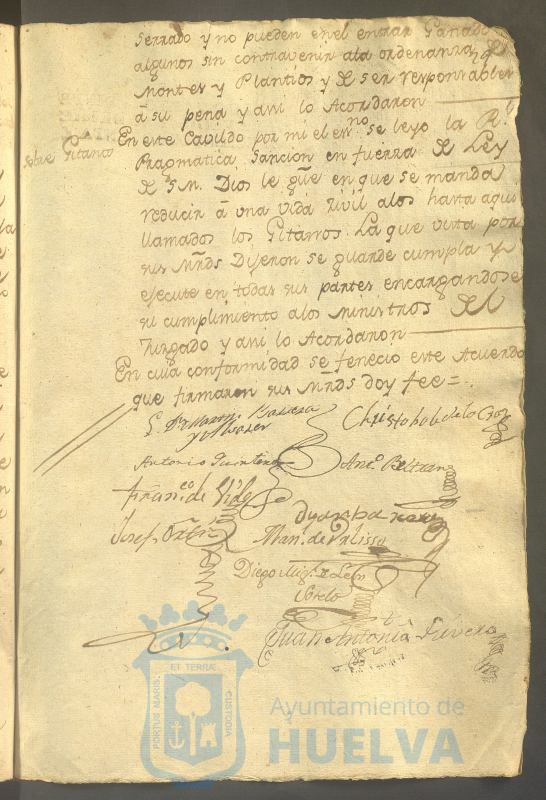 serrado y no pueden en el entrar Ganados
algunos sin contravenir ala ordenanza de
Montes y Plantios y de ser responsables
á su pena y asi lo Acordaron
sobre Gitanos
En este Cavildo por mi el essno se leyo la Rl
Pragmatica Sancion en fuerza de Ley
de S.M. Dios le gue en que se manda
reducir á una vida civil alos hasta aqui
llamados los Gitanos. La que vista por
sus Mrds Dijeron se guarde cumpla y
ejecute en todas sus partes encargandose
su cumplimiento alos Ministros del
Juzgado y asi lo Acordaron
En cuia conformidad se fenecio este Acuerdo
que firmaron sus Mrds doy fee=
Christobal de la Cruz
Antonio Quintero
Anto Beltran
Franco de Vides
Josef Ortiz
Manl. de
Diego Migl. de Leon
Sotelo
Juan Antonio Rivera
PORTUS MARIS
ET TERRÆ
CUSTODIA
Ayuntamiento de
HUELVA